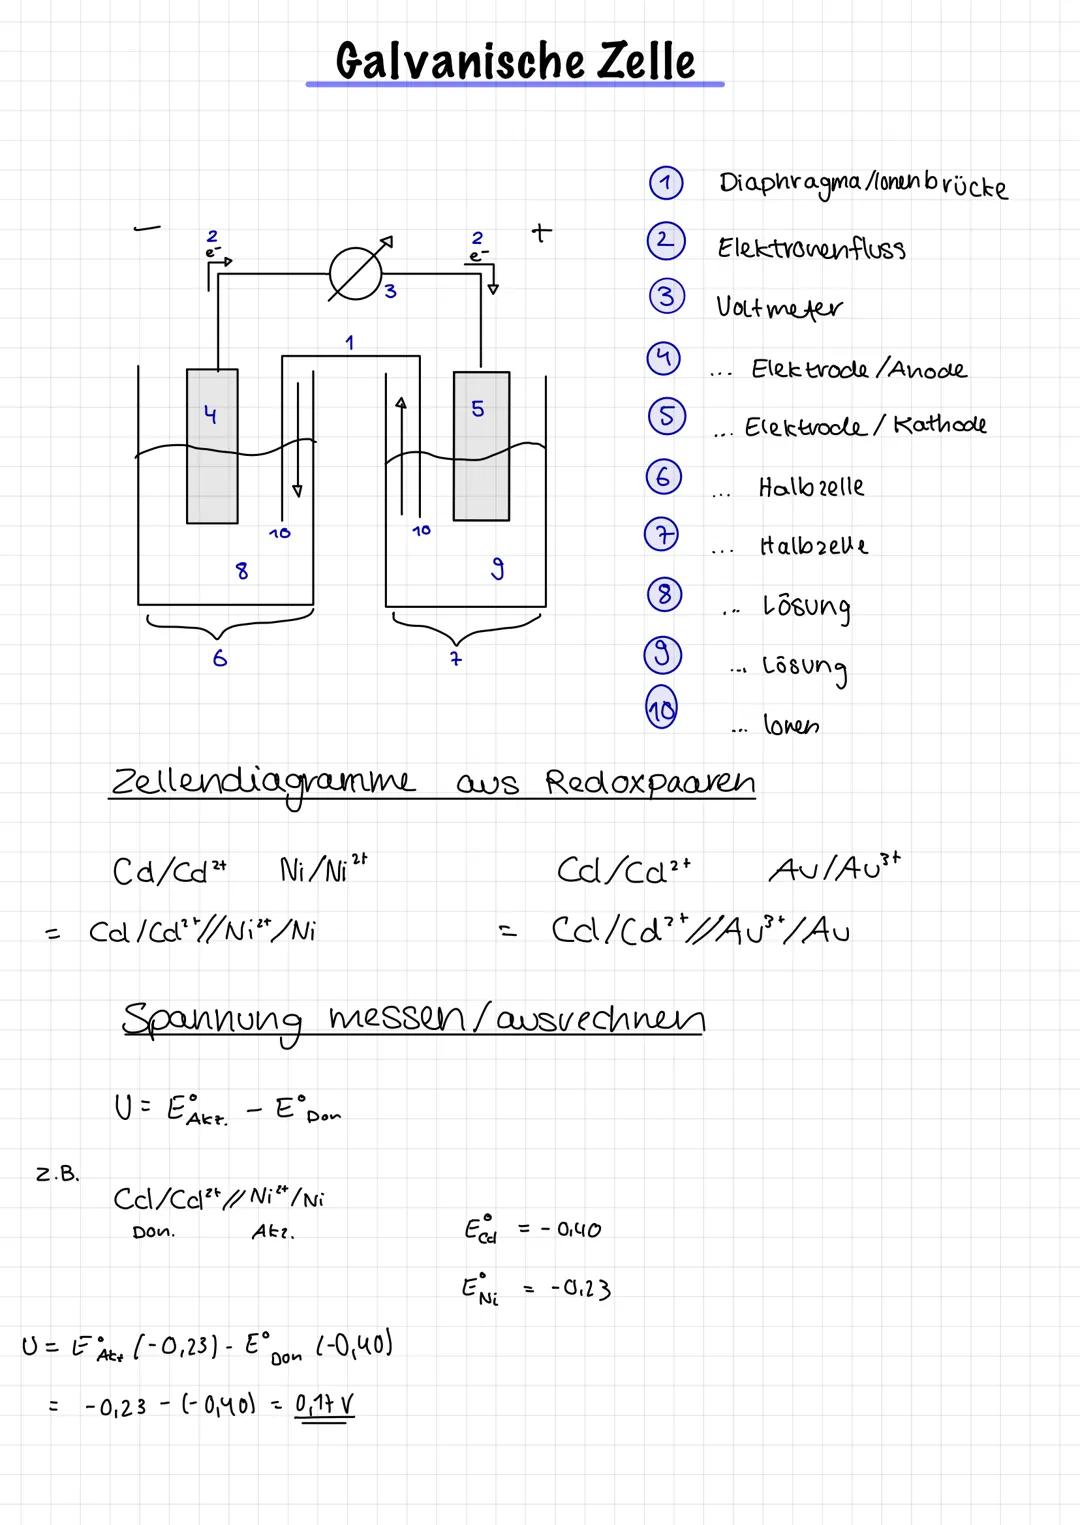 Galvanische Zelle
1 Diaphragma/Ionenbrücke
2 Elektronenfluss
3 Voltmeter
4 ... Elektrode/Anode
5 ... Elektrode/Kathode
6 ... Halbzelle
7 ... Halbzelle
8 ... Lösung
9 ... Lösung
10 ... Ionen
− 2 e⁻ 2 e⁻ +
3
1
4 5
10 10
8 9
6 7
Zellendiagramme aus Redoxpaaren
Cd/Cd²⁺ Ni/Ni²⁺ Cd/Cd²⁺ Au/Au³⁺
= Cd/Cd²⁺//Ni²⁺/Ni = Cd/Cd²⁺//Au³⁺/Au
Spannung messen/ausrechnen
U = E°Akz. − E°Don
z.B.
Cd/Cd²⁺//Ni²⁺/Ni
Don. Akz.
E°Cd = -0,40
E°Ni = -0,23
U = E°Akz (-0,23) - E°Don (-0,40)
= -0,23 - (-0,40) = 0,17 V